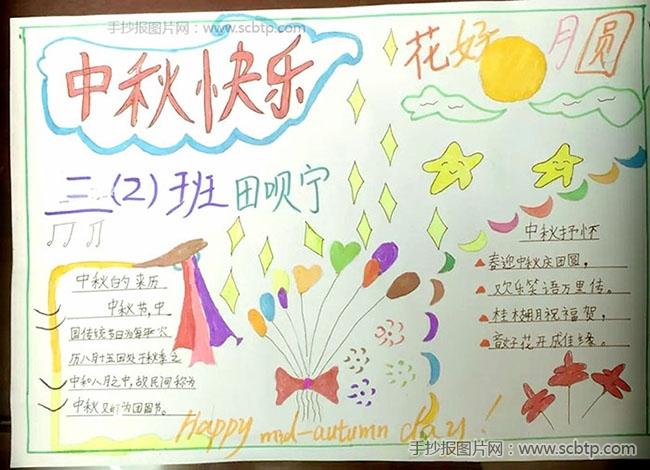 手抄报图片网：www.scbtp.com
中秋快乐
花好月圆
三(2)班 田呗宁
中秋的来历
中秋节,中
国传统节日为每年农
历八月十五因处于秋季之
中和八月之中,故民间称为
中秋又称为团圆节。
中秋抒怀
喜迎中秋庆团圆,
欢乐笑语万里传。
桂枝翘月祝福贺,
花开成佳缘。
Happy mid-autumn day!
手抄报图片网：www.scbtp.com